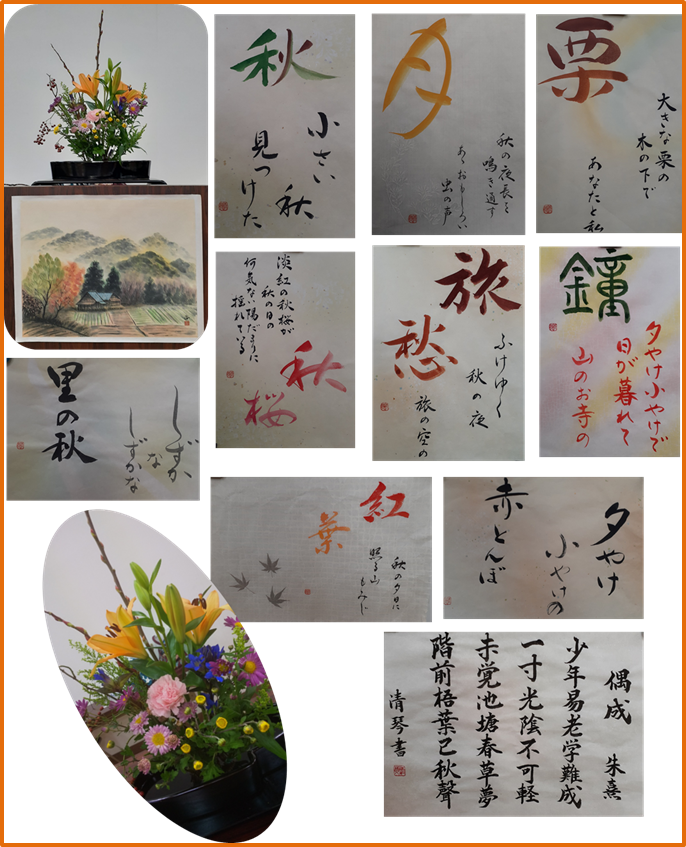 秋
小さい
秋
見つけた
月
秋の夜長を
鳴き通す
あゝおもしろい
虫の声
栗
大きな栗の
木の下で
あなたと私
淡紅の秋桜が
秋の日の
何気ない陽だまりに
揺れている
秋
桜
旅
愁
ふけゆく
秋の夜
旅の空の
鐘
夕やけ小やけで
日が暮れて
山のお寺の
しずか
な
しずかな
里の秋
紅
葉
秋の夕日に
照る山
もみじ
夕やけ
小やけの
赤とんぼ
偶成 朱熹
少年易老学難成
一寸光陰不可軽
未覚池塘春草夢
階前梧葉已秋聲
清琴書